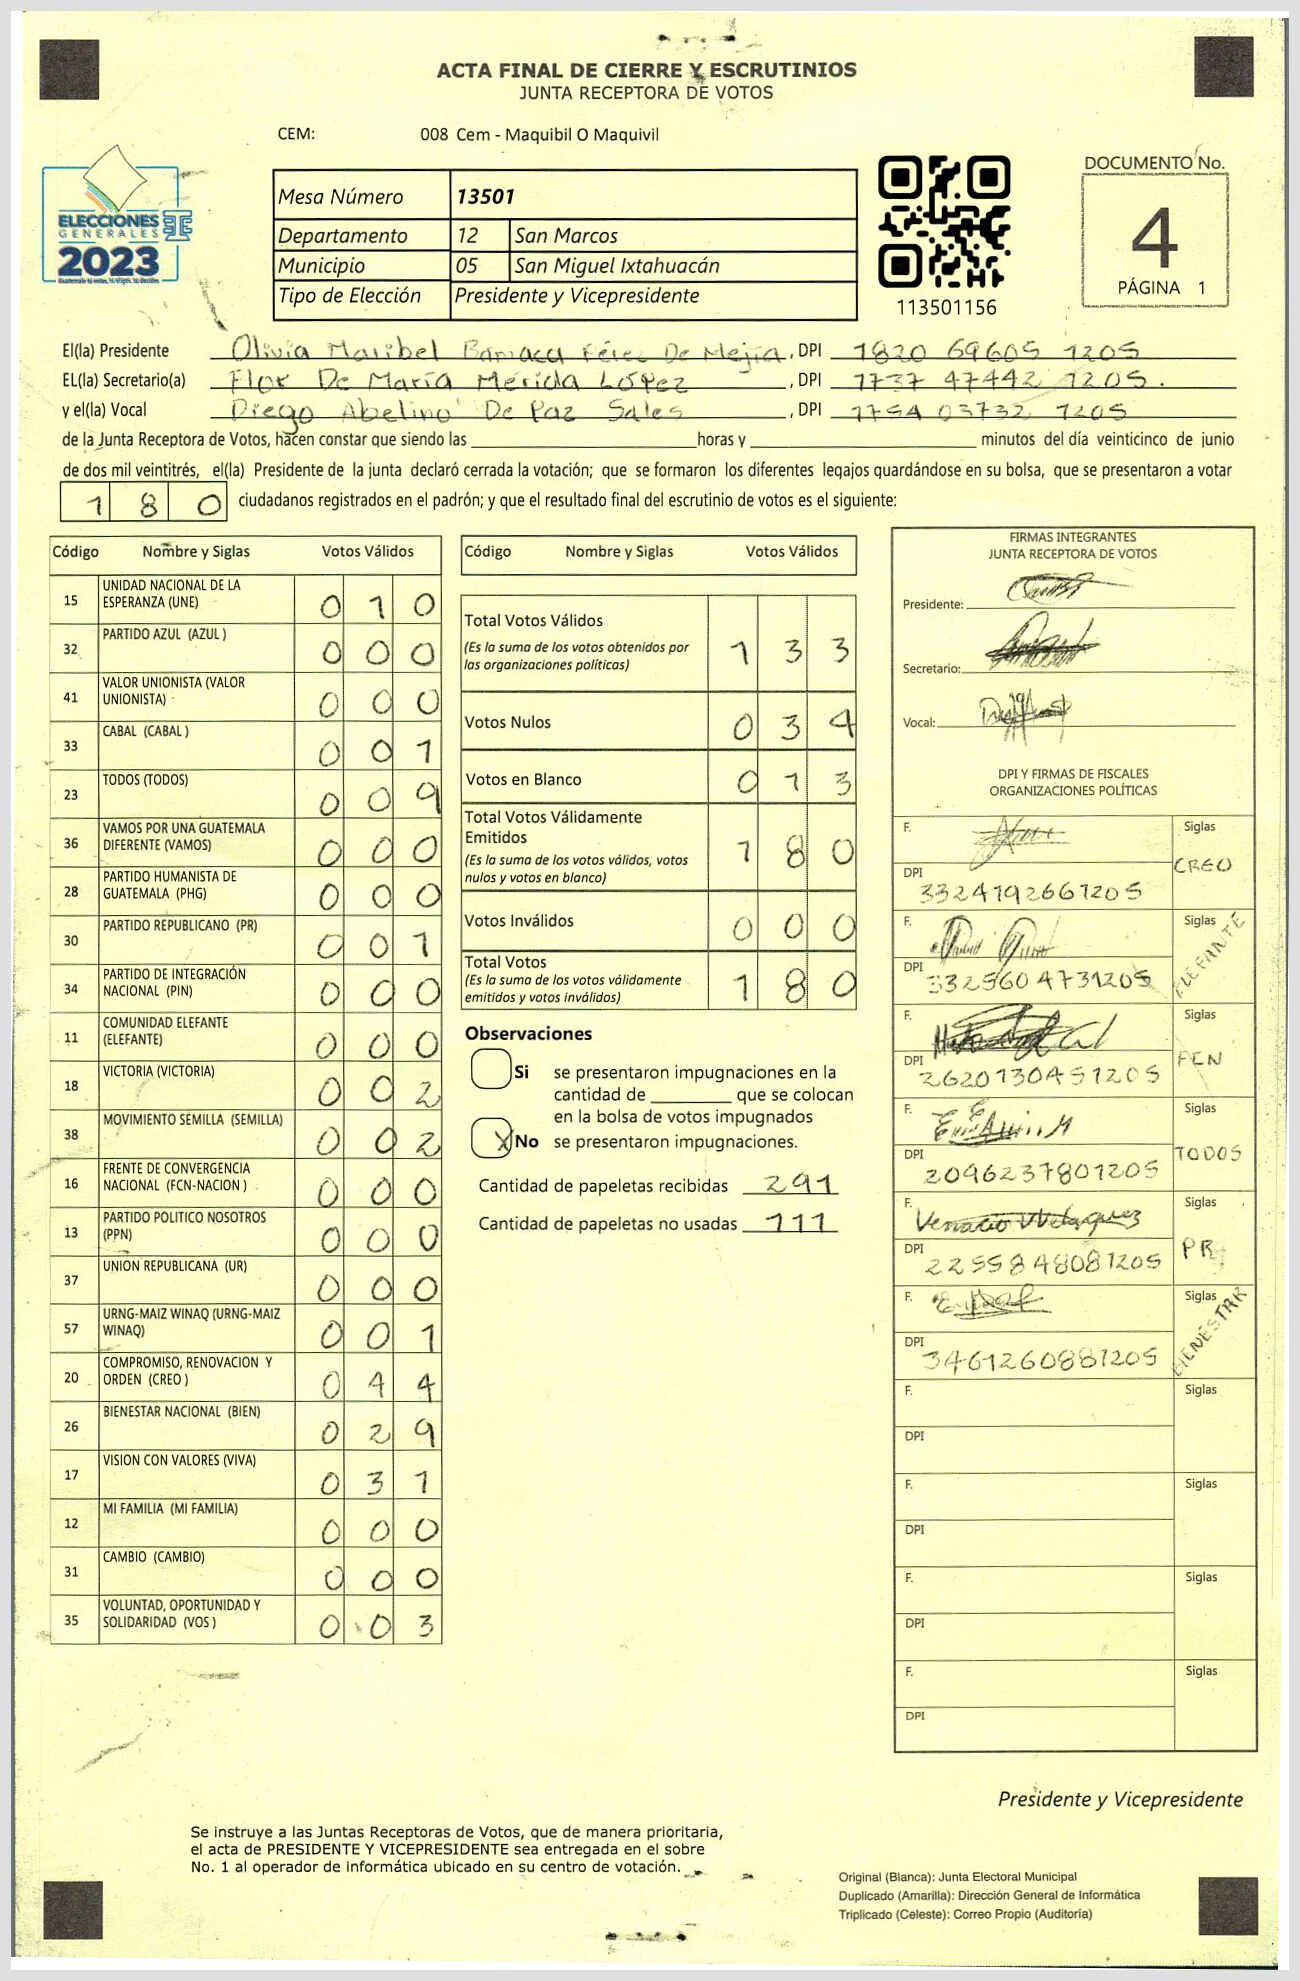 ACTA FINAL DE CIERRE Y ESCRUTINIOS
JUNTA RECEPTORA DE VOTOS
CEM: 008 Cem - Maquibil O Maquivil
ELECCIONES
GENERALES
2023
Mesa Número 13501
Departamento 12 San Marcos
Municipio 05 San Miguel Ixtahuacán
Tipo de Elección Presidente y Vicepresidente
113501156
DOCUMENTO No.
4
PÁGINA 1
El(la) Presidente Olivia Maribel Bámaca Pérez De Mejía, DPI 1820 69605 1205
EL(la) Secretario(a) Flor De María Mérida López, DPI 1737 47442 1205.
y el(la) Vocal Diego Abelino De Paz Sales, DPI 1754 03732 1205
de la Junta Receptora de Votos, hacen constar que siendo las horas y minutos del día veinticinco de junio
de dos mil veintitrés, el(la) Presidente de la junta declaró cerrada la votación; que se formaron los diferentes legajos guardándose en su bolsa, que se presentaron a votar
180 ciudadanos registrados en el padrón; y que el resultado final del escrutinio de votos es el siguiente:
Código Nombre y Siglas Votos Válidos
15 UNIDAD NACIONAL DE LA ESPERANZA (UNE) 010
32 PARTIDO AZUL (AZUL ) 000
41 VALOR UNIONISTA (VALOR UNIONISTA) 000
33 CABAL (CABAL ) 001
23 TODOS (TODOS) 009
36 VAMOS POR UNA GUATEMALA DIFERENTE (VAMOS) 000
28 PARTIDO HUMANISTA DE GUATEMALA (PHG) 000
30 PARTIDO REPUBLICANO (PR) 001
34 PARTIDO DE INTEGRACIÓN NACIONAL (PIN) 000
11 COMUNIDAD ELEFANTE (ELEFANTE) 000
18 VICTORIA (VICTORIA) 002
38 MOVIMIENTO SEMILLA (SEMILLA) 002
16 FRENTE DE CONVERGENCIA NACIONAL (FCN-NACION ) 000
13 PARTIDO POLITICO NOSOTROS (PPN) 000
37 UNION REPUBLICANA (UR) 000
57 URNG-MAIZ WINAQ (URNG-MAIZ WINAQ) 001
20 COMPROMISO, RENOVACION Y ORDEN (CREO ) 044
26 BIENESTAR NACIONAL (BIEN) 029
17 VISION CON VALORES (VIVA) 031
12 MI FAMILIA (MI FAMILIA) 000
31 CAMBIO (CAMBIO) 000
35 VOLUNTAD, OPORTUNIDAD Y SOLIDARIDAD (VOS ) 003
Código Nombre y Siglas Votos Válidos
Total Votos Válidos 133
(Es la suma de los votos obtenidos por
las organizaciones políticas)
Votos Nulos 034
Votos en Blanco 013
Total Votos Válidamente
Emitidos 180
(Es la suma de los votos válidos, votos
nulos y votos en blanco)
Votos Inválidos 000
Total Votos 180
(Es la suma de los votos válidamente
emitidos y votos inválidos)
Observaciones
Si se presentaron impugnaciones en la
cantidad de que se colocan
en la bolsa de votos impugnados
X No se presentaron impugnaciones.
Cantidad de papeletas recibidas 291
Cantidad de papeletas no usadas 111
FIRMAS INTEGRANTES
JUNTA RECEPTORA DE VOTOS
Presidente:
Secretario:
Vocal:
DPI Y FIRMAS DE FISCALES
ORGANIZACIONES POLÍTICAS
F. Siglas CREO
DPI 3324192661205
F. Siglas ELEFANTE
DPI 3325604731205
F. Siglas FCN
DPI 2620130451205
F. Siglas TODOS
DPI 2096237801205
F. Venacio Velasquez Siglas PR
DPI 2255848081205
F. Siglas BIENESTAR
DPI 3461260881205
F. Siglas
DPI
F. Siglas
DPI
F. Siglas
DPI
F. Siglas
DPI
Presidente y Vicepresidente
Se instruye a las Juntas Receptoras de Votos, que de manera prioritaria,
el acta de PRESIDENTE Y VICEPRESIDENTE sea entregada en el sobre
No. 1 al operador de informática ubicado en su centro de votación.
Original (Blanca): Junta Electoral Municipal
Duplicado (Amarilla): Dirección General de Informática
Triplicado (Celeste): Correo Propio (Auditoría)